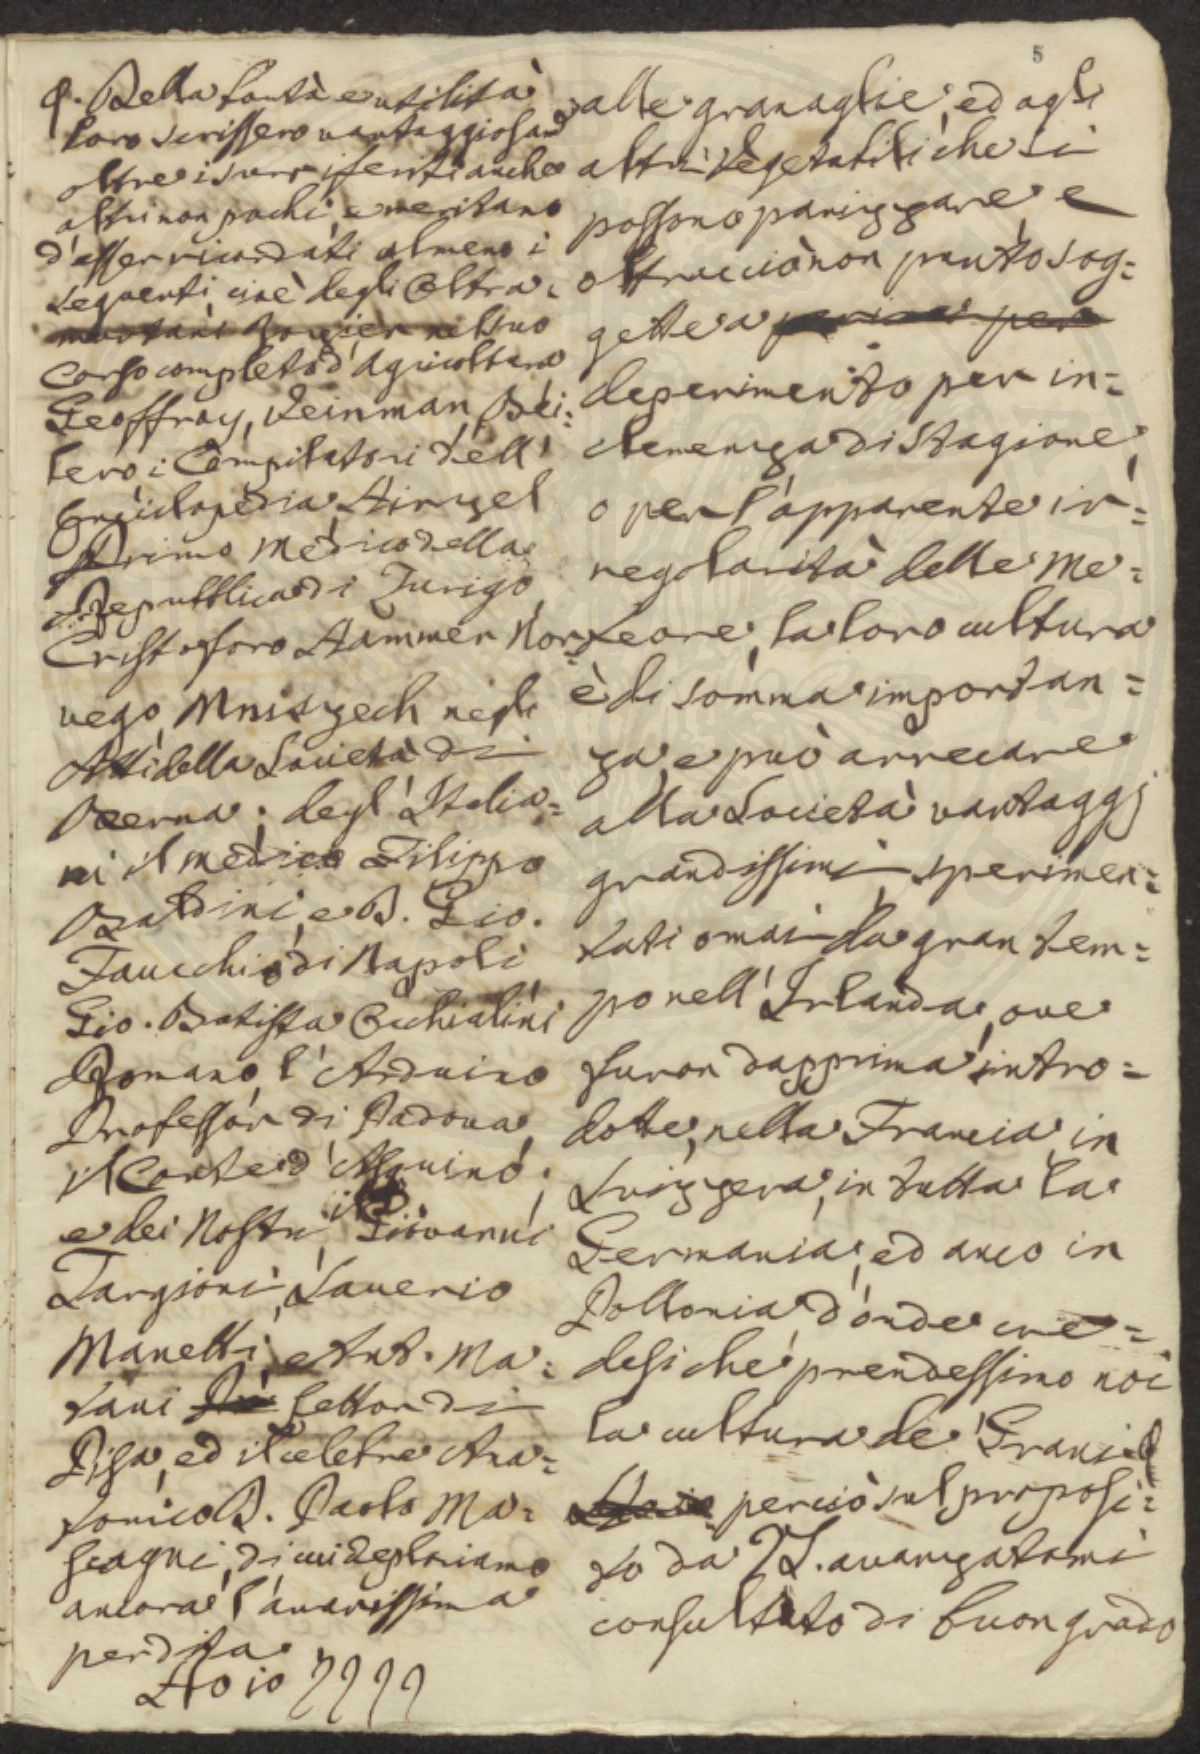 5
φ. Della bontà e utilità
loro scrissero vantaggiosam.
oltre i surriferiti anche
altri non pochi, e meritano
d'esser ricordati almeno i
seguenti, cioè degli Oltra-
montani Rozier nel suo
Corso completo d'Agricoltura
Geoffroy, Reinman, Bei-
lero i Compilatori dell'
Enciclopedia, Hirzel
Primo Medico della
Repubblica di Zurigo,
Cristoforo Hammer Nor-
vego, Mniszech negli
Atti della Società di
Berna; degl'Italia-
ni il medico Filippo
Baldini, e D. Gio.
Faucchio di Napoli,
Gio. Batista Occhialini
Romano, l'Arduino
Professor di Padova,
il Conte d'Alquino;
e dei Nostri, il Giovanni
Targioni, Saverio
Manetti, e Ant. Ma-
tani Lettor di
Pisa, ed il celebre Ana-
tomico D. Paolo Ma-
scagni, di cui deploriamo
ancora l'amarissima
perdita.
alle granaglie, ed agli
altri vegetabili che si
possono panizzare e
oltracciò non punto sog-
gette a
deperimento per in-
clemenza di stagione,
o per l'apparente ir-
regolarità delle Me-
teore, la loro cultura
è di somma importan-
za, e può arrecare
alla Società vantaggj
grandissimi, sperimen-
tati omai da gran tem-
po nell'Irlanda, ove
furon dapprima intro-
dotte, nella Francia, in
Svizzera, in tutta la
Germania, ed anco in
Pollonia d'onde cre-
desi che prendessimo noi
la cultura de' Grani φ
perciò sul proposi-
to da VS. avanzatomi
consulto di buon grado